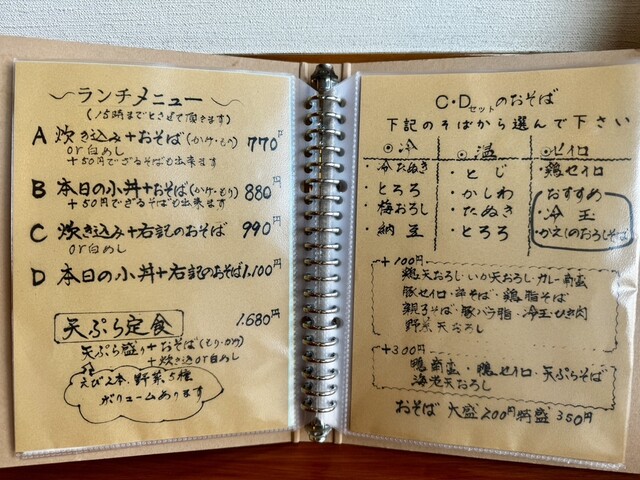 ランチメニュー
(15時までとさせて頂きます)
A 炊き込み+おそば(かけ・もり) 770円
or白めし
+50円でざるそばも出来ます
B 本日の小丼+おそば(かけ・もり) 880円
+50円でざるそばも出来ます
C 炊き込み+右記のおそば 990円
or白めし
D 本日の小丼+右記のおそば 1.100円
天ぷら定食 1.680円
天ぷら盛り+おそば(もり・かけ)
+炊き込or白めし
えび2本、野菜5種
ボリュームあります
C・Dセットのおそば
下記のそばから選んで下さい
◎冷 ◎温 ◎セイロ
・冷たぬき ・とじ ・鶏セイロ
・とろろ ・かしわ おすすめ
・梅おろし ・たぬき ・冷玉
・納豆 ・とろろ ・かえしのおろしそば
+100円
鶏天おろし・いか天おろし・カレー南蛮
豚セイロ・辛そば・鶏脂そば
親子そば・豚バラ脂・冷玉ひき肉
野菜天おろし
+300円
鴨南蛮・鴨セイロ・天ぷらそば
海老天おろし
おそば 大盛200円 特盛350円